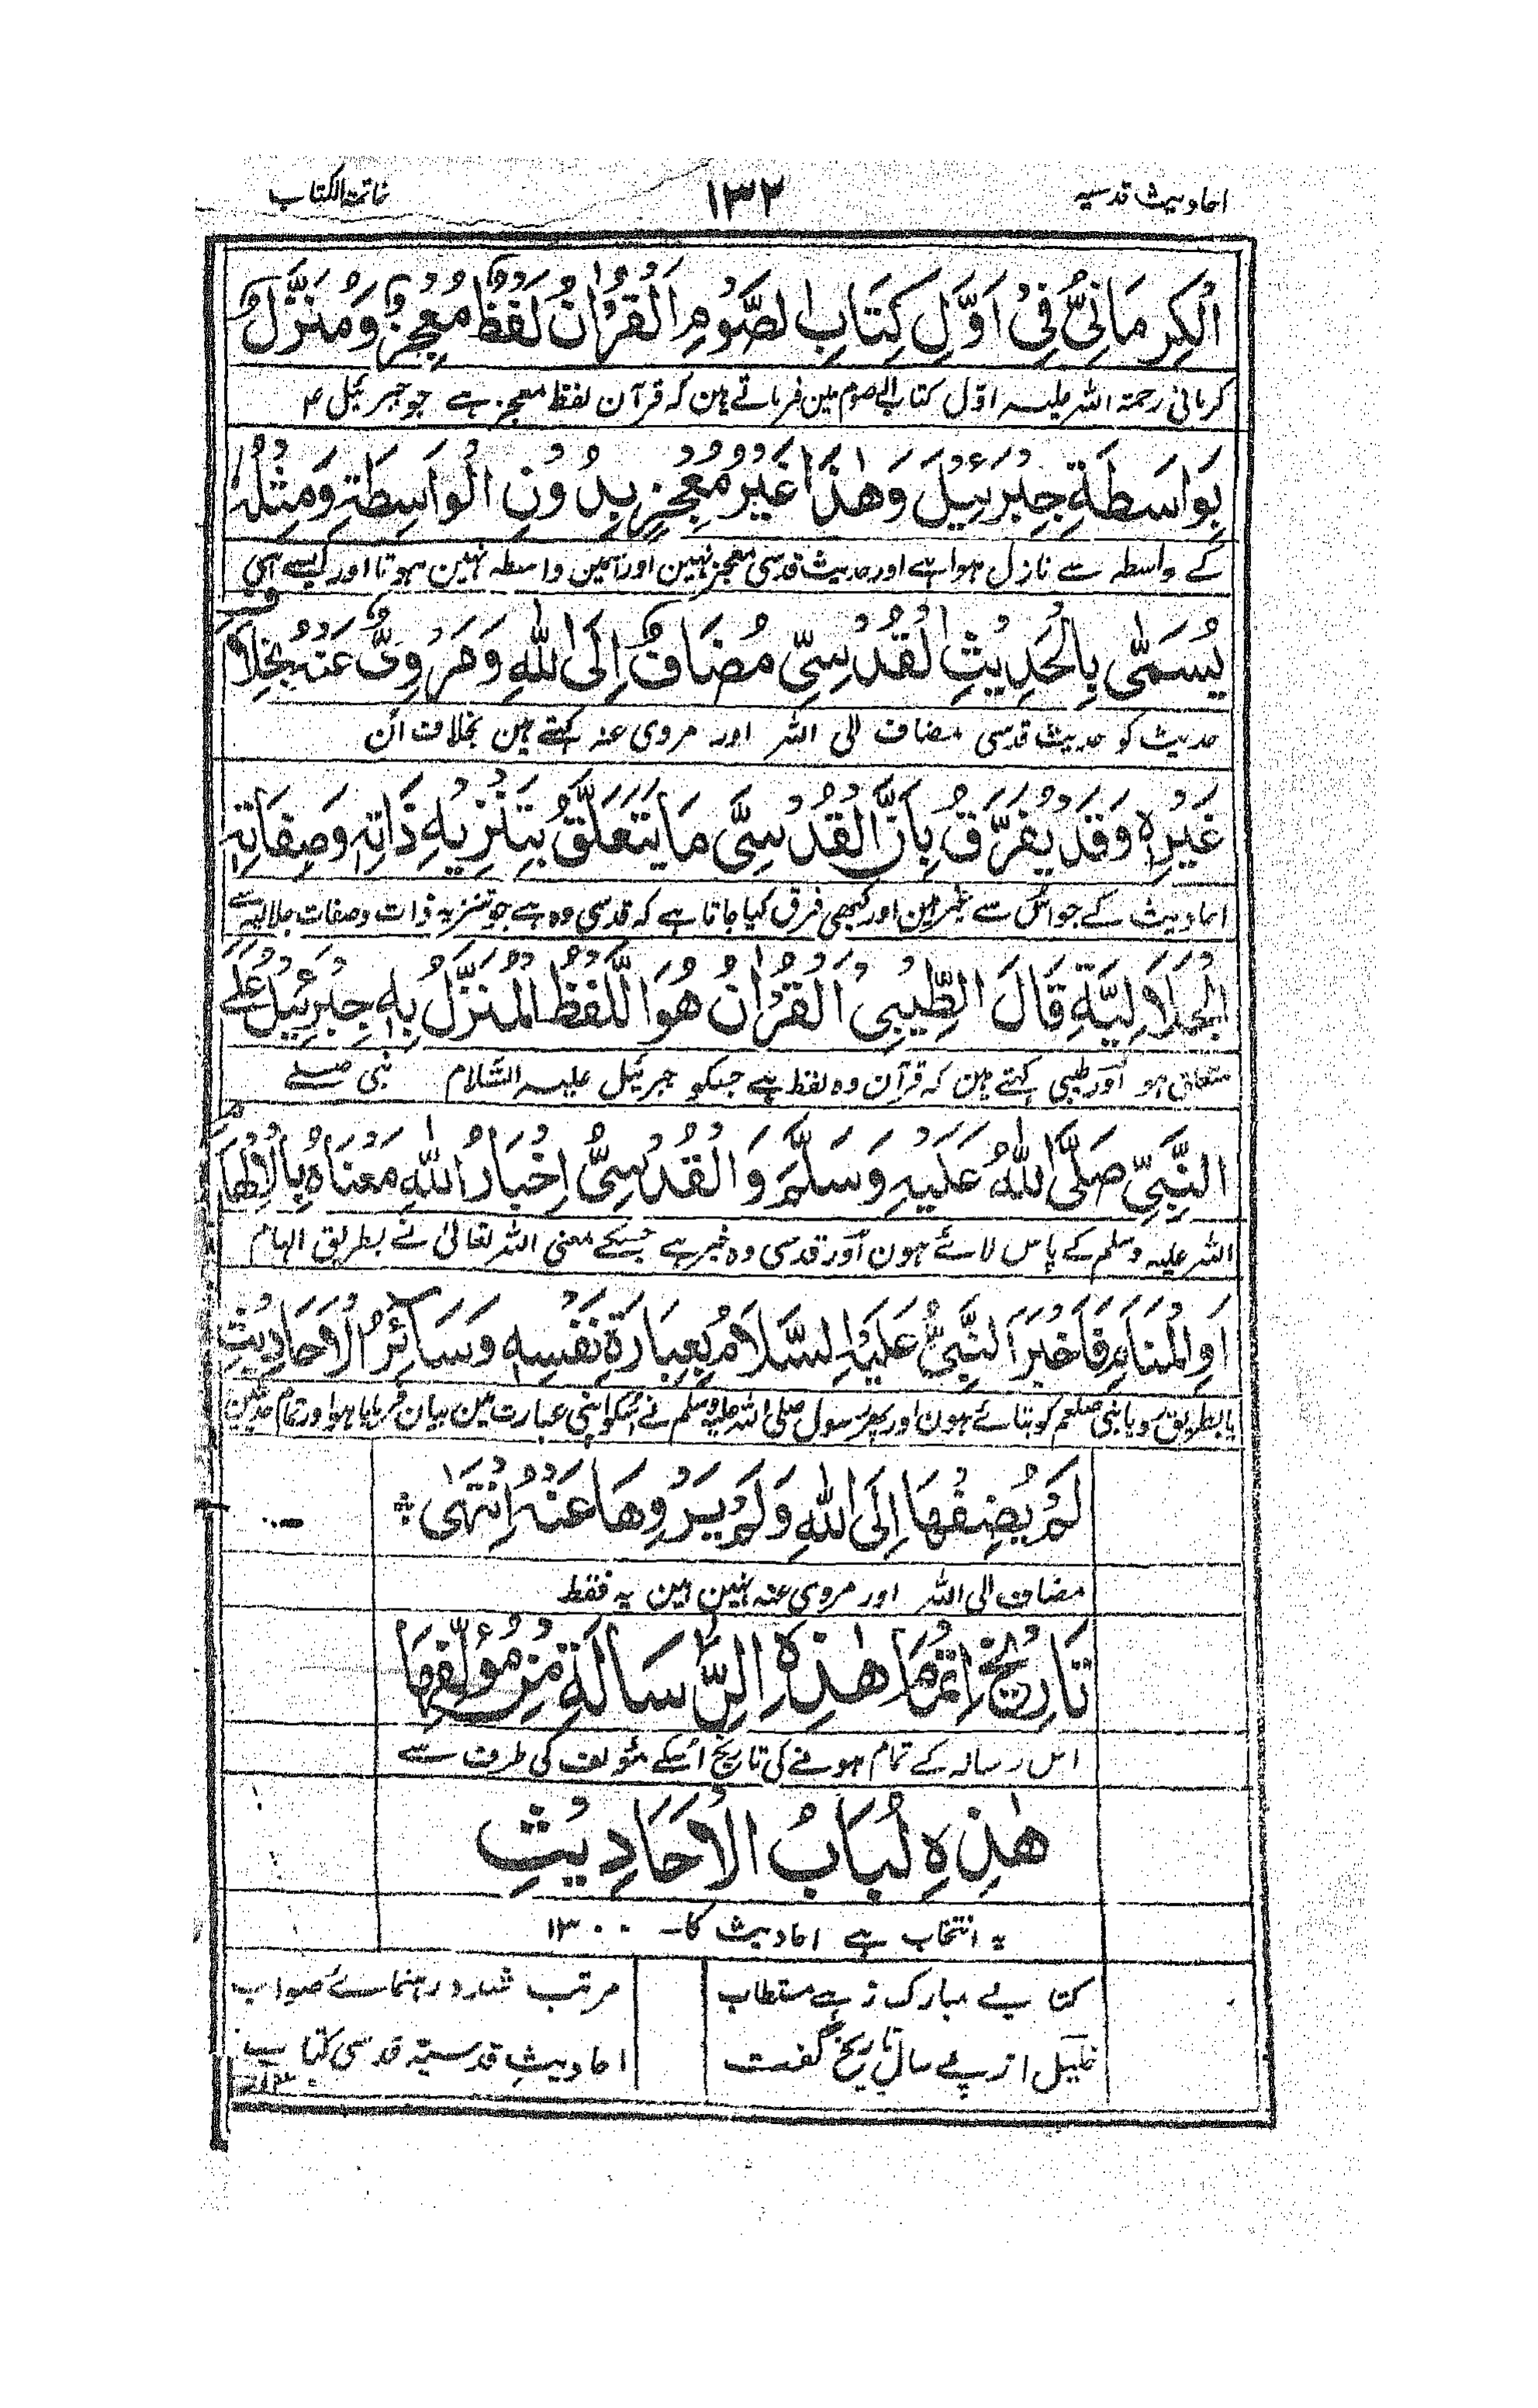 احادیث قدسیه ۱۳۲ خاتمة الکتاب
الْکِرْمَانِیُّ فِیْ اَوَّلِ کِتَابِ الصَّوْمِ الْقُرْاٰنُ لَفْظٌ مُعْجِزٌ وَمُنَزَّلٌ
کرمانی رحمۃ اللہ علیہ اوّل کتاب الصوم مین فرماتے ہین کہ قرآن لفظ معجز ہے جو جبرئیل ۴
بِوَاسَطَةِ جِبْرَئِیْلَ وَهٰذَا غَیْرُ مُعْجِزٍ بِدُوْنِ الْوَاسِطَةِ وَمِثْلُهٗ
کے واسطہ سے نازل ہوا ہے اور حدیث قدسی معجز نہین اور اسمین واسطہ نہین ہوتا اور ایسے ہی
یُسَمّٰی بِالْحَدِیْثِ الْقُدْسِیِّ مُضَافٌ اِلَی اللّٰهِ وَمَرْوِیٌّ عَنْهُ بِخِلَافِ
حدیث کو حدیث قدسی مضاف الی اللہ اور مروی عنہ کہتے ہین بخلاف اُن
غَیْرِهٖ وَقَدْ یُفَرَّقُ بِاَنَّ الْقُدْسِیَّ مَا یَتَعَلَّقُ بِتَنْزِیْهِ ذَاتِهٖ وَصِفَاتِهٖ
احادیث کے جو اسکے سے غیر ہین اور کبھی فرق کیا جاتا ہے کہ قدسی وہ ہے جو تنزیہ ذات وصفات جلالیہ سے
الْجَلَالِیَّةِ قَالَ الطِّیْبِیُّ الْقُرْاٰنُ هُوَ اللَّفْظُ الْمُنَزَّلُ بِهٖ جِبْرَئِیْلُ عَلَی
متعلق ہو اور طیبی کہتے ہین کہ قرآن وہ لفظ ہے جسکو جبرئیل علیہ السّلام نبی صلے
النَّبِیِّ صَلَّی اللّٰهُ عَلَیْهِ وَسَلَّمَ وَالْقُدْسِیُّ اِخْبَارُ اللّٰهِ مَعْنَاهُ بِالْاِلْهَامِ
اللہ علیہ وسلم کے پاس لائے ہون اور قدسی وہ خبر ہے جسکے معنی اللہ تعالیٰ نے بطریق الہام
اَوِ الْمَنَامِ فَاَخْبَرَ النَّبِیُّ عَلَیْهِ السَّلَامُ بِعِبَارَةِ نَفْسِهٖ وَسَائِرُ الْاَحَادِیْثِ
یا بطریق رویا نبی صلعم کو بتائے ہون اور پھر رسول صلی اللہ علیہ وسلم نے اسکو اپنی عبارت مین بیان فرمایا ہو اور تمام حدیثین
لَمْ یُضِفْهَا اِلَی اللّٰهِ وَلَمْ یَرْوِهَا عَنْهُ اِنْتَهٰی
مضاف الی اللہ اور مروی عنہ نہین ہین یہ فقط
تَارِیْخُ اِتْمَامِ هٰذِهِ الرِّسَالَةِ مِنْ مُؤَلِّفِهَا
اس رسالہ کے تمام ہونے کی تاریخ اسکے مؤلف کی طرف سے
هٰذِهِ لُبَابُ الْاَحَادِیْثِ
یہ انتخاب ہے احادیث کا۔ ۱۳۰۰
کتابے مبارک زہے مستطاب مرتب شد و رہنمائے صواب
خلیل از پے سال تاریخ گفت احادیثِ قدسیّہ قدسی کتاب